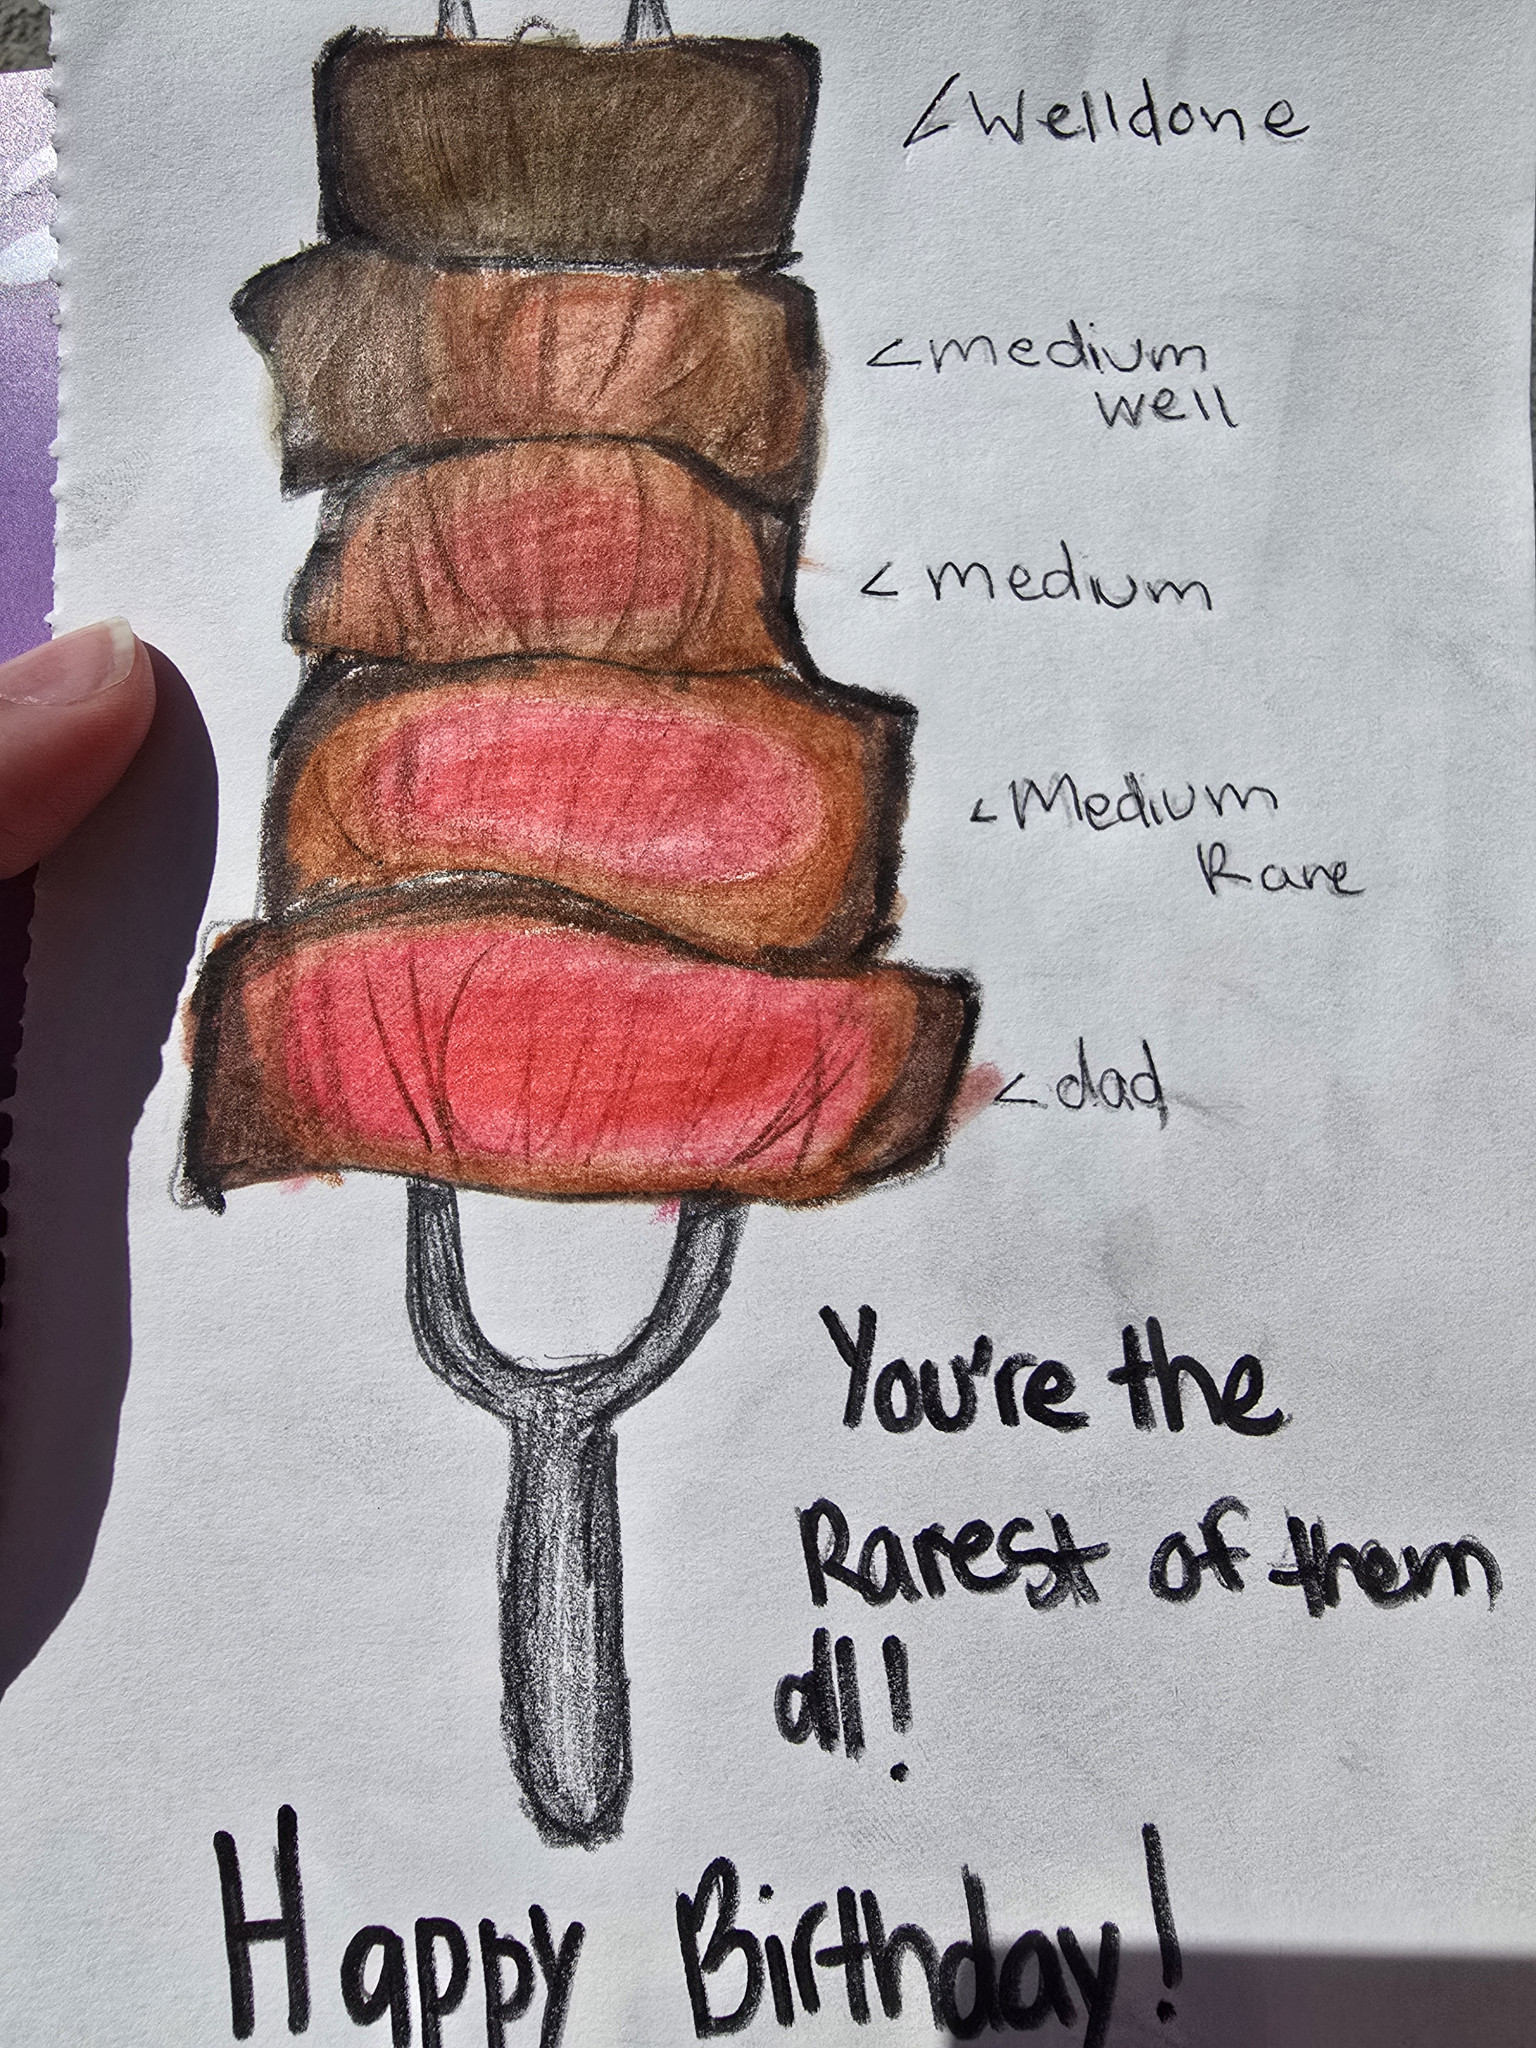 <Welldone
<medium
well
<medium
<Medium
Rare
<dad
You're the
Rarest of them
all!
Happy Birthday!